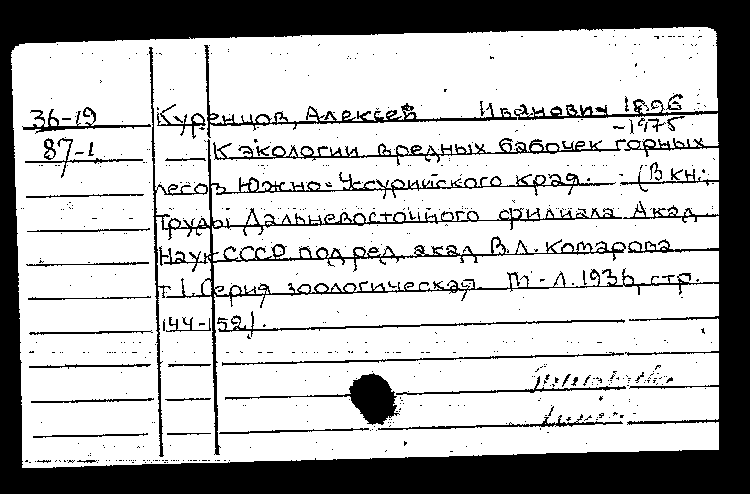 36-19 Куренцов, Алексей Иванович 1896
-1975
87-1 К экологии вредных бабочек горных
лесов Южно-Уссурийского края. (В кн.:
Труды Дальневосточного филиала Акад
Наук СССР под ред. акад В.Л. Комарова
т 1. Серия зоологическая. М-Л. 1936, стр.
144-152).